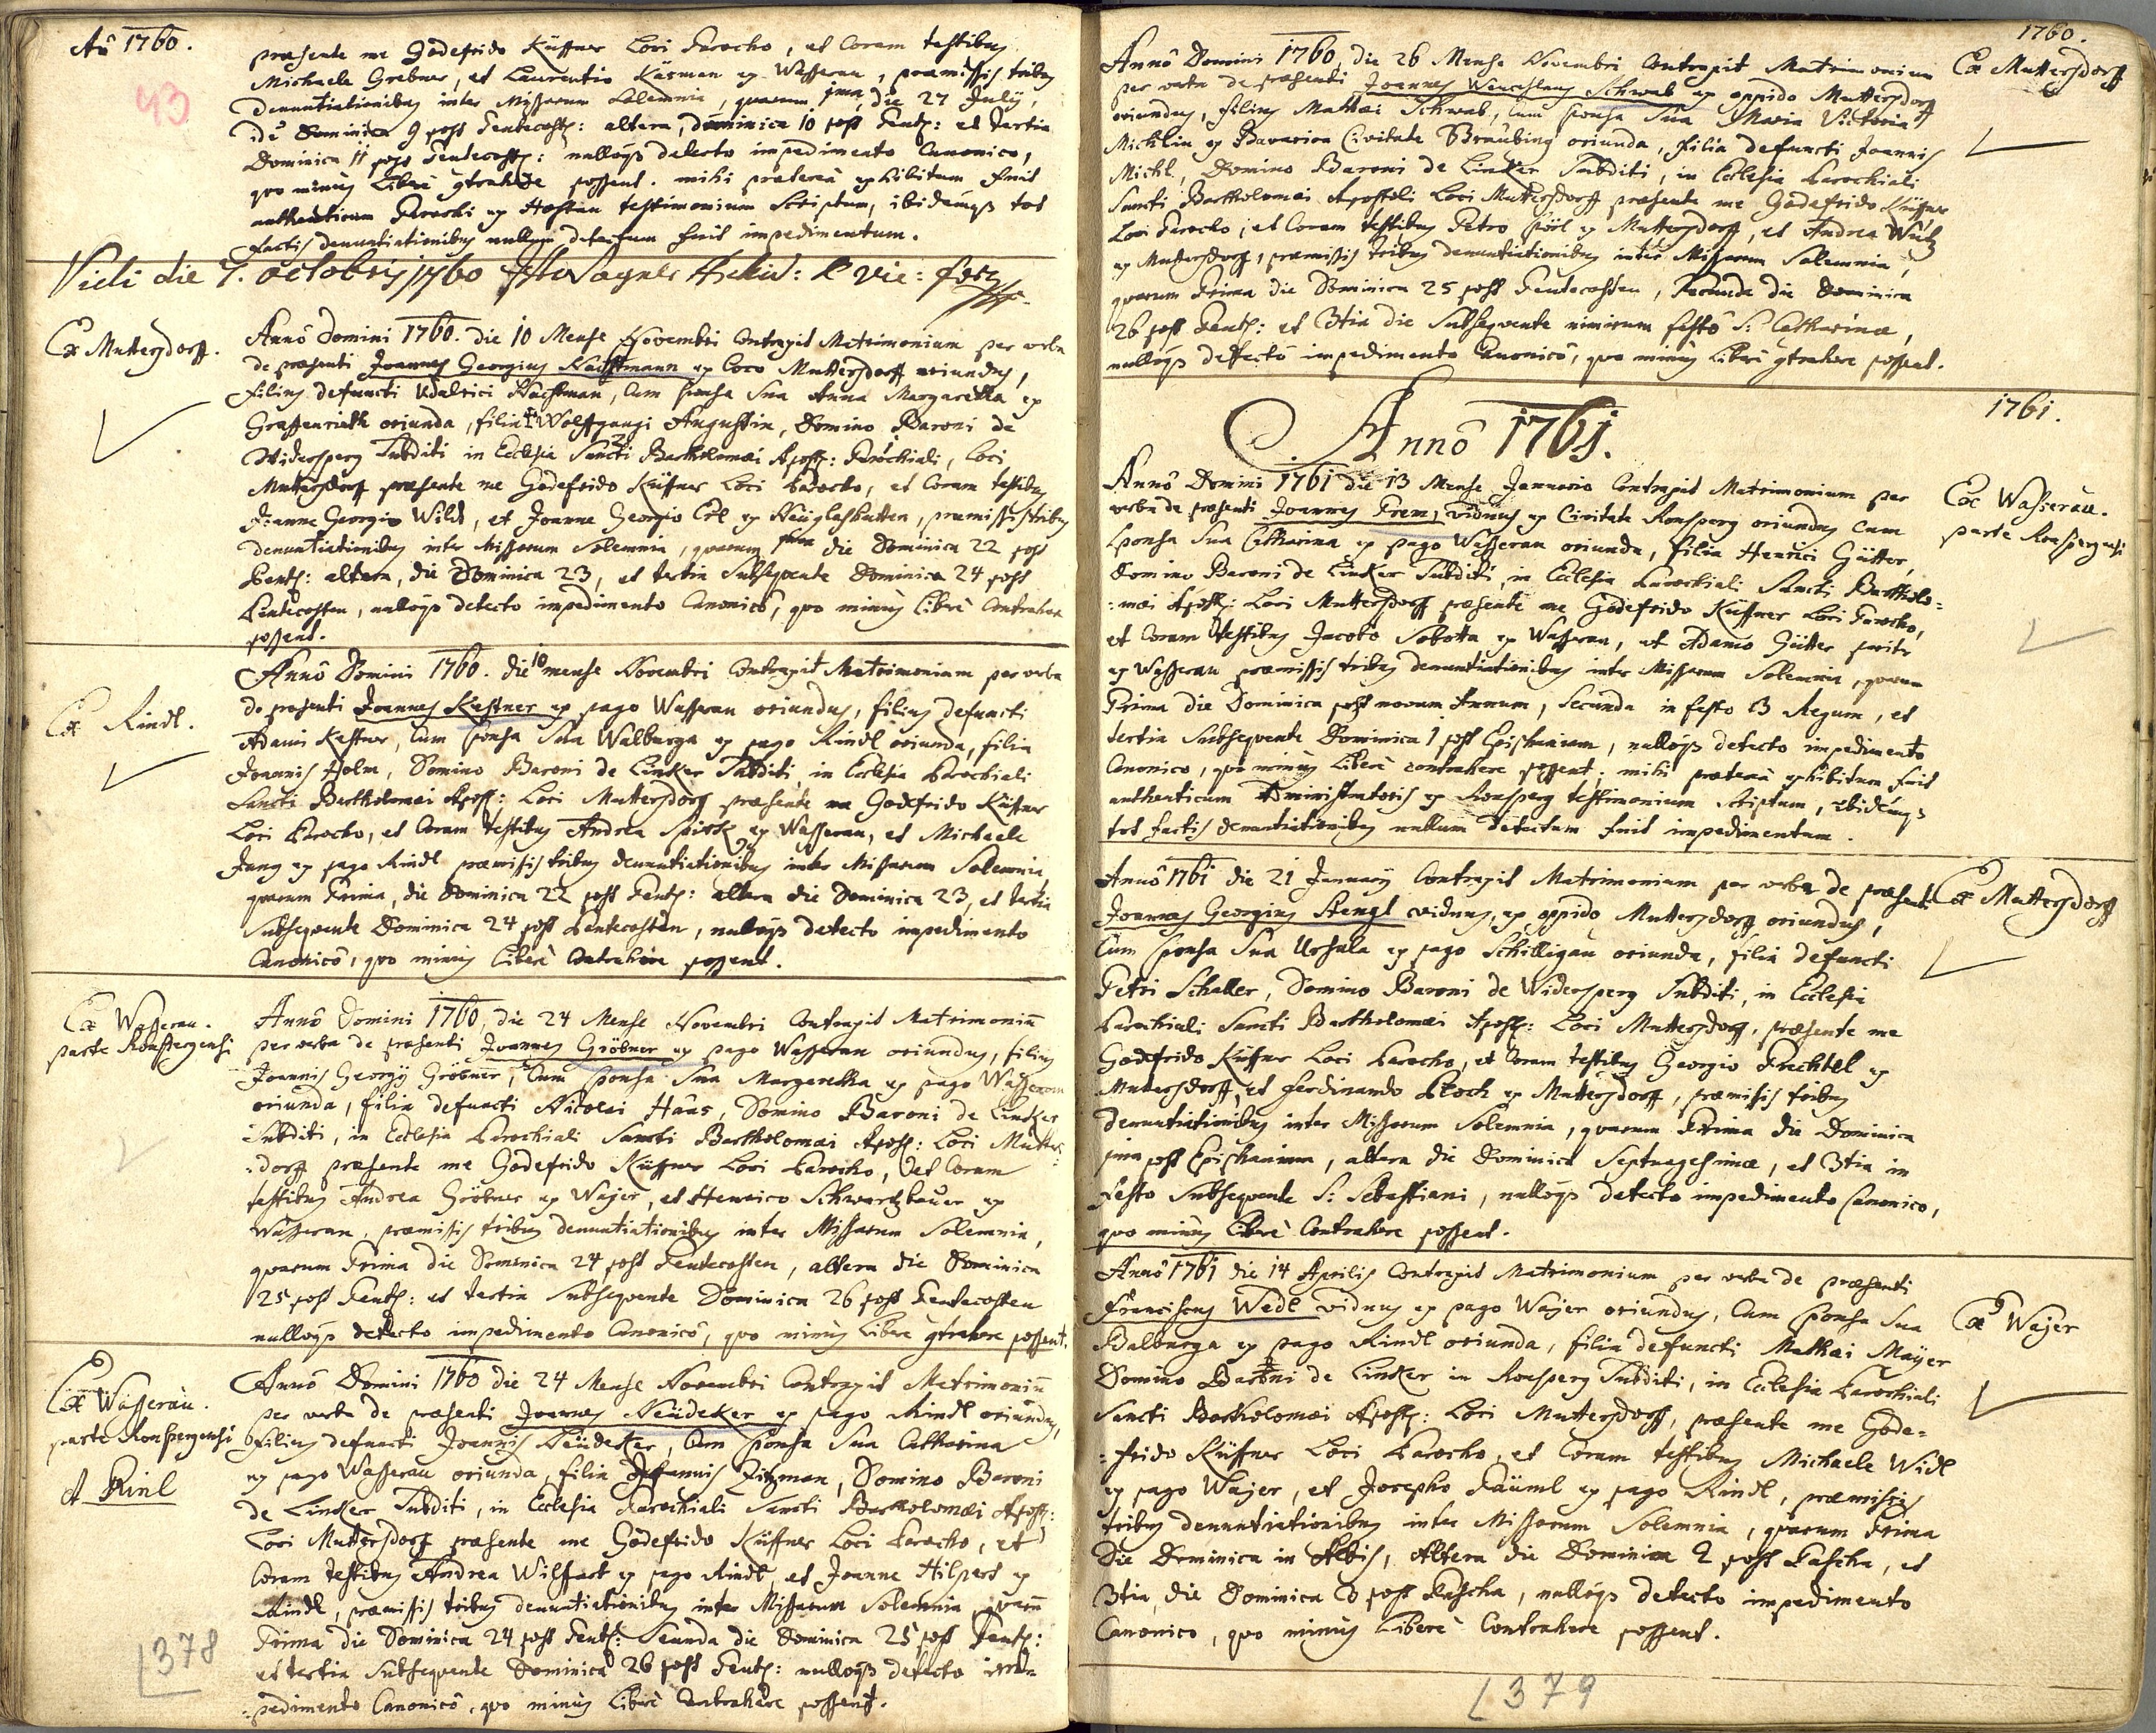 Aō 1760.
43
præsente me Godefrido Küffner Loci Parocho, et Coram testibus
Michaele Grebner, et Laurentio Käsman ex Wasserau, præmissis tribus
denuntiationibus inter Missarum Solemnia, quarum 1ma, die 27 July,
id ē Dominica 9 post Pentecost: altera, dominica 10 post Pent: et tertia
Dominica 11 post Pentecost: nulloqs detecto impedimento Canonico,
quo minus Liberè contrahere possent. mihi præterea exhibitum fuit
authenticum Parochi ex Hostau testimonium Scriptum, ibidemqs tot
factis denuntiationibus nullum detectum fuit impedimentum.
Vidi die 7. octobris 1760 Wagner Archid: & Vic: for:
Ex Muttersdorff.
Annô Domini 1760. die 10 Mense Novembri Contraxit Matrimonium per verba
de præsenti Joannes Georgius Hachtmann ex Loco Muttersdorff oriundus,
filius defuncti Udalrici Hachtman, Cum sponsa Sua Anna Margaretha ex
Graffenrieth oriunda, filia Wolffgangi Augustin, Domino Baroni de
Widersperg Subditi in Ecclesia Sancti Bartholomæi Apost: Parochiali, Loci
Muttersdorff præsente me Godefrido Küffner Loci Parocho, et Coram testibus
Joanne Georgio Wild, et Joanne Georgio Erl ex Neüglashutten, præmissis tribus
denuntiationibus inter Missarum Solemnia, quarum 1ma die Dominica 22 post
Pent: altera, die Dominica 23, et tertia Subsequente Dominica 24 post
Pentecosten, nulloqs detecto impedimento Canonicô, quo minus Liberè Contrahere
possent.
Ex Rindl.
Annô Domini 1760. die 10 mense Novembri Contraxit Matrimonium per verba
de præsenti Joannes Kastner ex pago Wasserau oriundus, filius defuncti
Adami Kastner, Cum sponsa Sua Walburga ex pago Rindl oriunda, filia
Joannis Holm, Domino Baroni de Linker Subditi, in Ecclesia Parochiali
Sancti Bartholomæi Apost: Loci Muttersdorff præsente me Godefrido Küffner
Loci Parocho, et Coram testibus Andrea Spirk ex Wasserau, et Michaele
Jung ex pago Rindl præmissis tribus denuntiationibus inter Missarum Solemnia,
quarum Prima, die Dominica 22 post Pent: altera die Dominica 23, et tertia
Subsequente Dominica 24 post Pentecosten, nulloqs detecto impedimento
Canonicô, quo minus Liberè Contrahere possent.
Ex Wasserau.
parte Ronspergensi
Annô Domini 1760, die 24 Mense Novembri Contraxit Matrimoniū
per verba de præsenti Joannes Gröbner ex pago Wasserau oriundus, filius
Joannis Georgÿ Gröbner, Cum sponsa Sua Margaretha ex pago Wasserau
oriunda, filia defuncti Nicolai Haas, Domino Baroni de Linker
Subditi, in Ecclesia Parochiali Sancti Bartholomæi Apost: Loci Mutters-
:dorff præsente me Godefrido Küffner Loci Parocho, et Coram
testibus Andrea Gröbner ex Wajer, et Henrico Schwartzbauer ex
Wasserau, præmissis tribus denuntiationibus inter Missarum Solemnia,
quarum Prima die Dominica 24 post Pentecosten, altera die Dominica
25 post Pent: et tertia Subsequente Dominica 26 post Pentecosten
nulloqs detecto impedimento Canonicô, quo minus Liberè contrahere possent.
Ex Wasserau.
parte Ronspergensi
et Rinl
Annô Domini 1760 die 24 Mense Novembri Contraxit Matrimoniū
per verba de præsenti Joannes Neüdeker ex pago Rindl oriundus,
filius defuncti Joannis Neüdeker, Cum sponsa Sua Catharina
ex pago Wasserau oriunda, filia Joannis Zitzman, Domino Baroni
de Linker Subditi, in Ecclesia Parochiali Sancti Bartholomæi Apost:
Loci Muttersdorff præsente me Godefrido Küffner Loci Parocho, et
Coram testibus Andrea Wilfart ex pago Rindl, et Joanne Hilpert ex
Rindl, præmissis tribus denuntiationibus inter Missarum Solemnia, quarū
Prima die Dominica 24 post Pent: Secunda die Dominica 25 post Pent:
et tertia Subsequente Dominica 26 post Pent: nulloqs detecto im-
:pedimento Canonicô, quo minus Liberè Contrahere possent.
378
1760.
Ex Muttersdorff
Annô Domini 1760, die 26 Mense Novembri Contraxit Matrimonium
per verba de præsenti Joannes Wenceslaus Schwab ex oppido Muttersdorff
oriundus, filius Mathæi Schwab, Cum sponsa Sua Maria Victoria
Michlin ex Bavarica Civitate Straubing oriunda, filia defuncti Joannis
Michl, Domino Baroni de Linker Subditi, in Ecclesia Parochiali
Sancti Bartholomæi Apostoli Loci Muttersdorff præsente me Godefrido Küffner
Loci Parocho, et Coram testibus Petro Pörl ex Muttersdorff, et Andrea Würtz
ex Muttersdorff, præmissis tribus denuntiationibus inter Missarum Solemnia,
quarum Prima die Dominica 25 post Pentecosten, Secunda die Dominica
26 post Pent: et 3tia die Subsequente nimirum festô S: Catharinæ,
nulloqs detectô impedimento Canonicô, quo minus Liberè contrahere possent.
1761.
Annô 1761.
Ex Wasserau.
parte Ronspergensi
Annô Domini 1761 die 13 Mense Januario Contraxit Matrimonium per
verba de præsenti Joannes Frem, viduus ex Civitate Ronsperg oriundus Cum
sponsa Sua Catharina ex pago Wasserau oriunda, filia Henrici Gütter,
Domino Baroni de Linker Subditi, in Ecclesia Parochiali Sancti Bartholo=
:mæi Apost: Loci Muttersdorff præsente me Godefrido Küffner Loci Parocho,
et Coram testibus Jacobo Sobotta ex Wasserau, et Adamo Gütter pariter
ex Wasserau præmissis tribus denuntiationibus inter Missarum Solemnia, quarum
Prima die Dominica post novum Annum, Secunda in festo 3 Regum, et
tertia Subsequente Dominica 1 post Epiphaniam, nulloqs detecto impedimento
Canonico, quo minus Liberè contrahere possent; mihi præterea exhibitum fuit
authenticum Administratoris ex Ronsperg testimonium scriptum, ibidemqs
tot factis denuntiationibus nullum detectum fuit impedimentum.
Ex Muttersdorff
Annô 1761 die 21 January Contraxit Matrimonium per verba de præsenti
Joannes Georgius Stengl viduus, ex oppido Muttersdorff oriundus,
Cum sponsa Sua Ursula ex pago Schilligau oriunda, filia defuncti
Petri Schaller, Domino Baroni de Widersperg Subditi, in Ecclesia
Parochiali Sancti Bartholomæi Apost: Loci Muttersdorff, præsente me
Godefrido Küffner Loci Parocho, et Coram testibus Georgio Prechtel ex
Muttersdorff, et Ferdinando Bloch ex Muttersdorff, præmissis tribus
denuntiationibus inter Missarum Solemnia, quarum Prima die Dominica
1ma post Epiphaniam, altera die Dominica Septuagesimæ, et 3tia in
festo Subsequente S: Sebastiani, nulloqs detecto impedimento Canonico,
quo minus Liberè Contrahere possent.
Ex Wajer
Annô 1761 die 14 Aprilis Contraxit Matrimonium per verba de præsenti
Franciscus Wedl viduus ex pago Wajer oriundus, Cum sponsa Sua
Balburga ex pago Rindl oriunda, filia defuncti Mathæi Maÿer
Domino Baroni de Linker in Ronsperg Subditi, in Ecclesia Parochiali
Sancti Bartholomæi Apost: Loci Muttersdorff, præsente me Gode=
:frido Küffner Loci Parocho, et Coram testibus Michaele Widl
ex pago Wajer, et Josepho Päuml ex pago Rindl, præmissis
tribus denuntiationibus inter Missarum Solemnia, quarum Prima
die Dominica in Albis, Altera die Dominica 2 post Pascha, et
3tia, die Dominica 3 post Pascha, nulloqs detecto impedimento
Canonico, quo minus Liberè Contrahere possent.
379